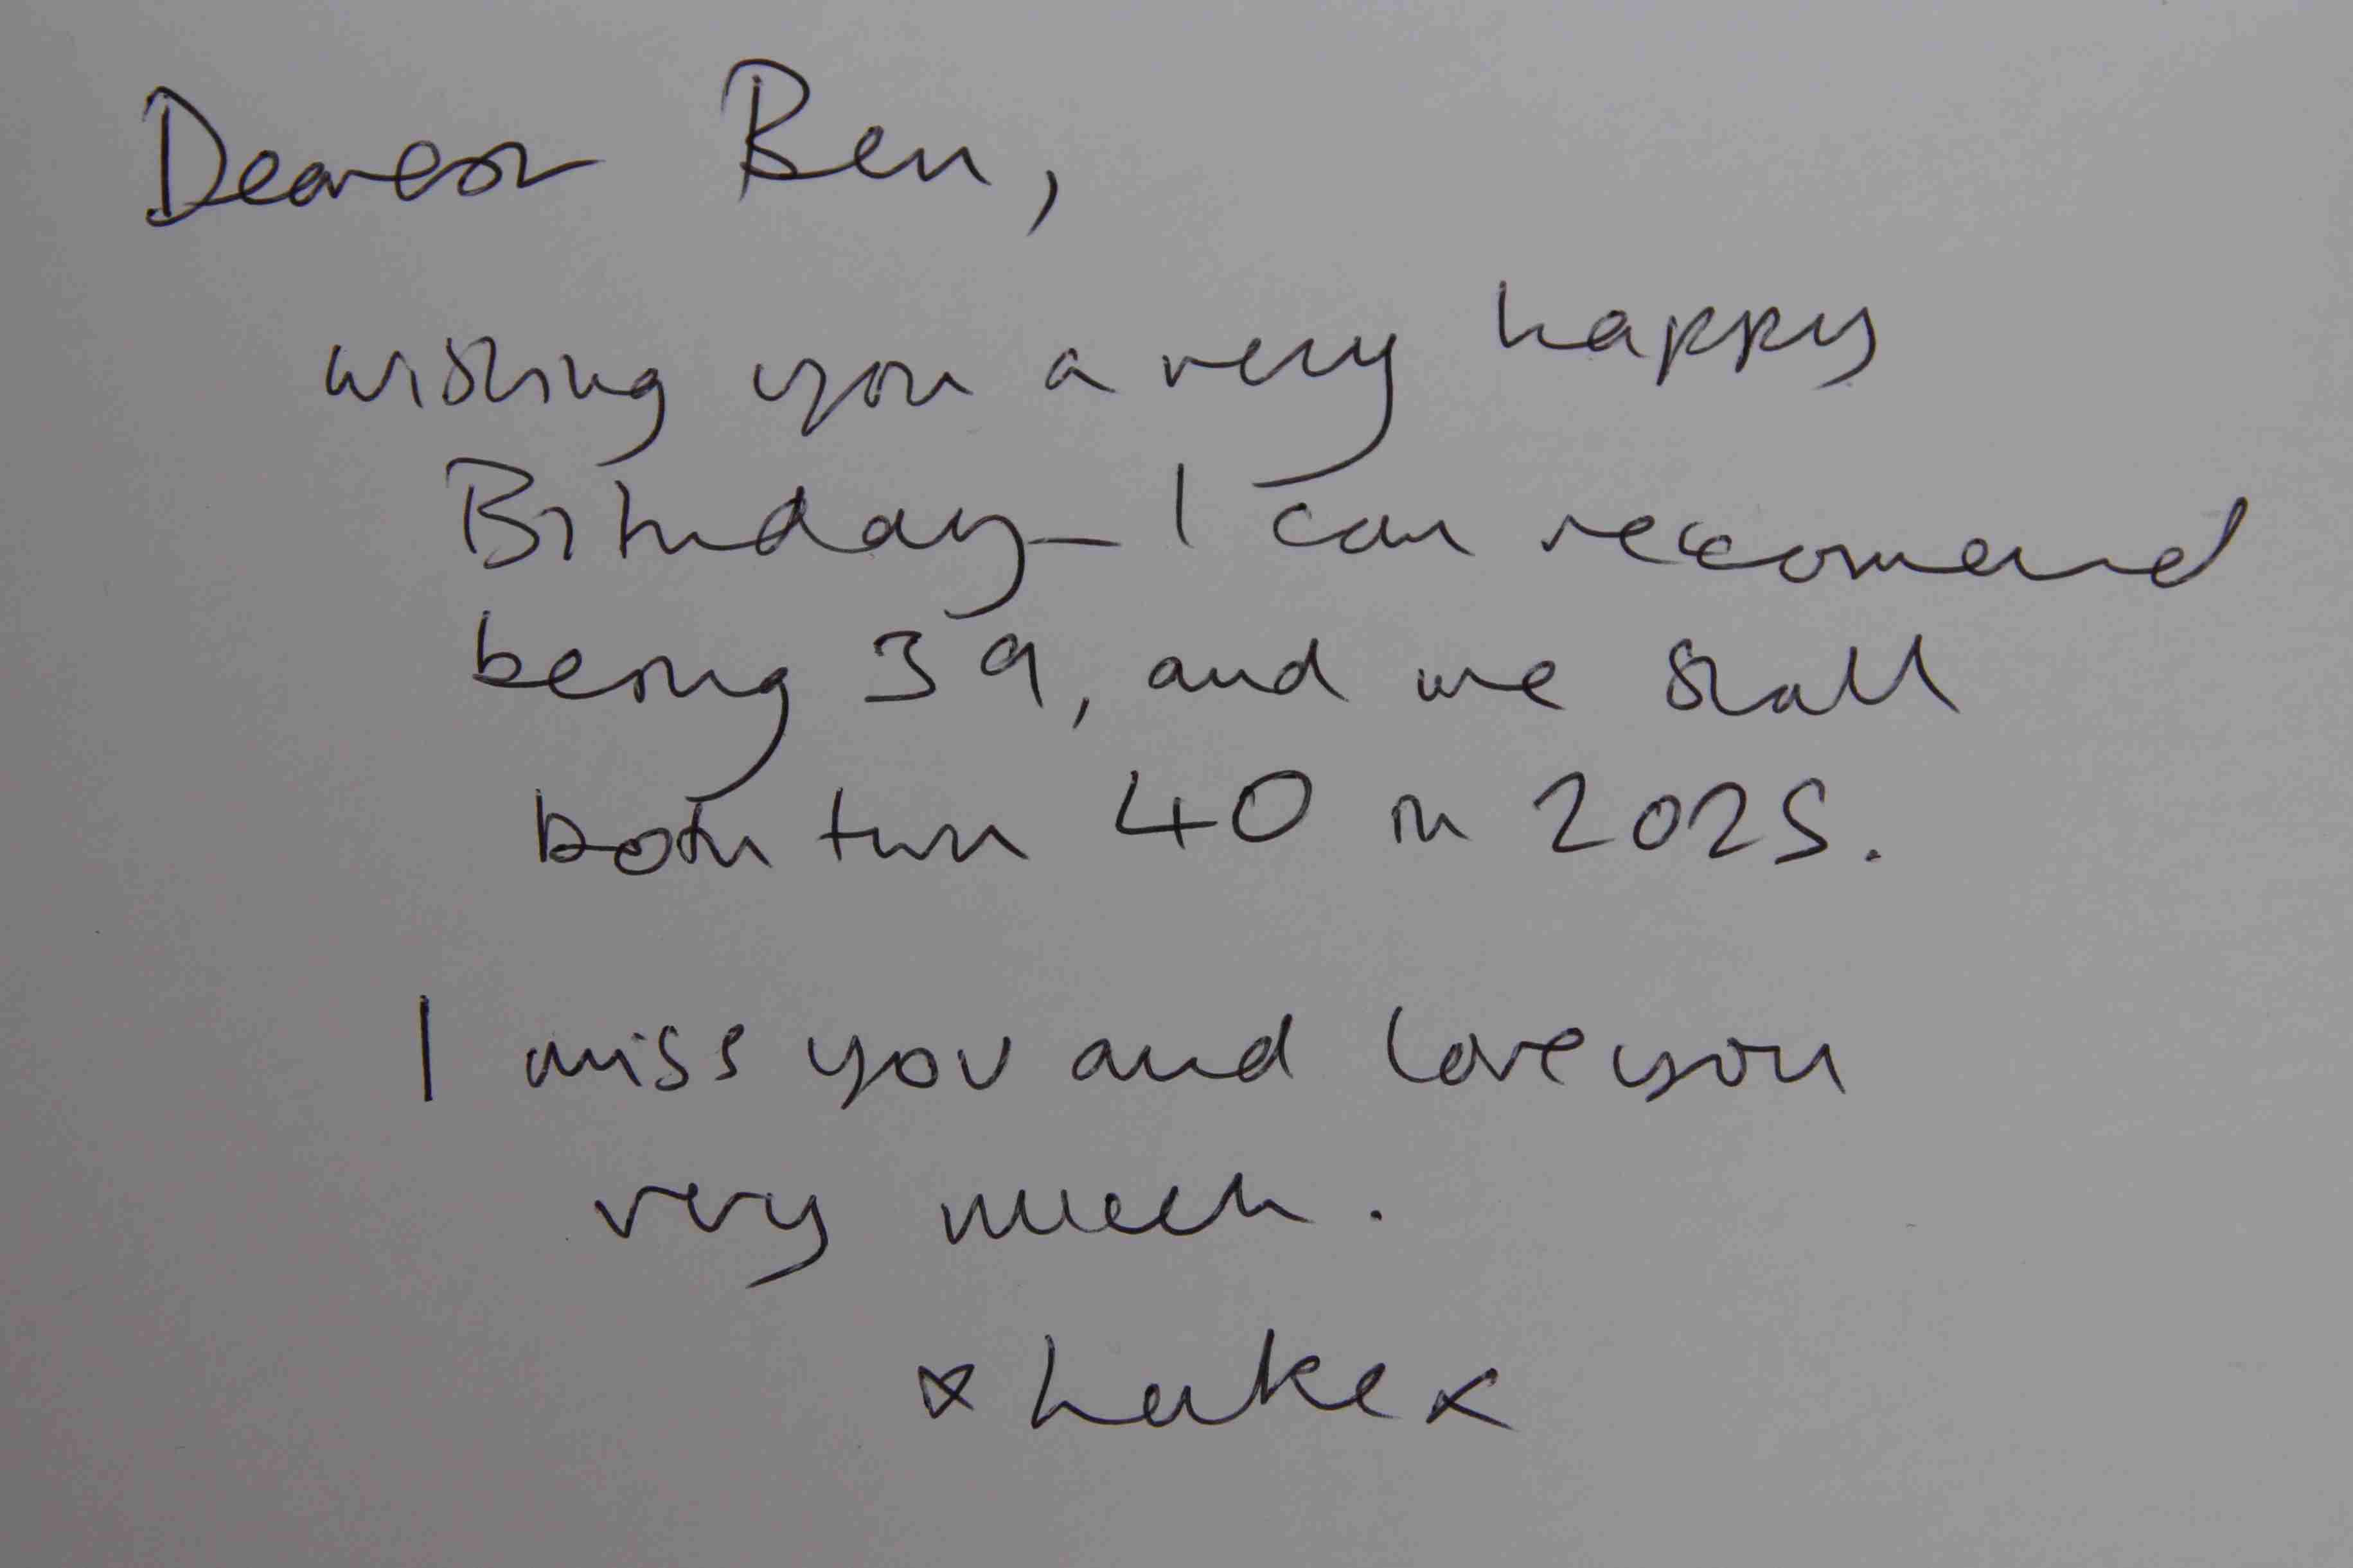 Dearest Ben,
wishing you a very happy
Birthday – I can reccomend
being 39, and we shall
both turn 40 in 2025.
I miss you and love you
very much.
x Luke x